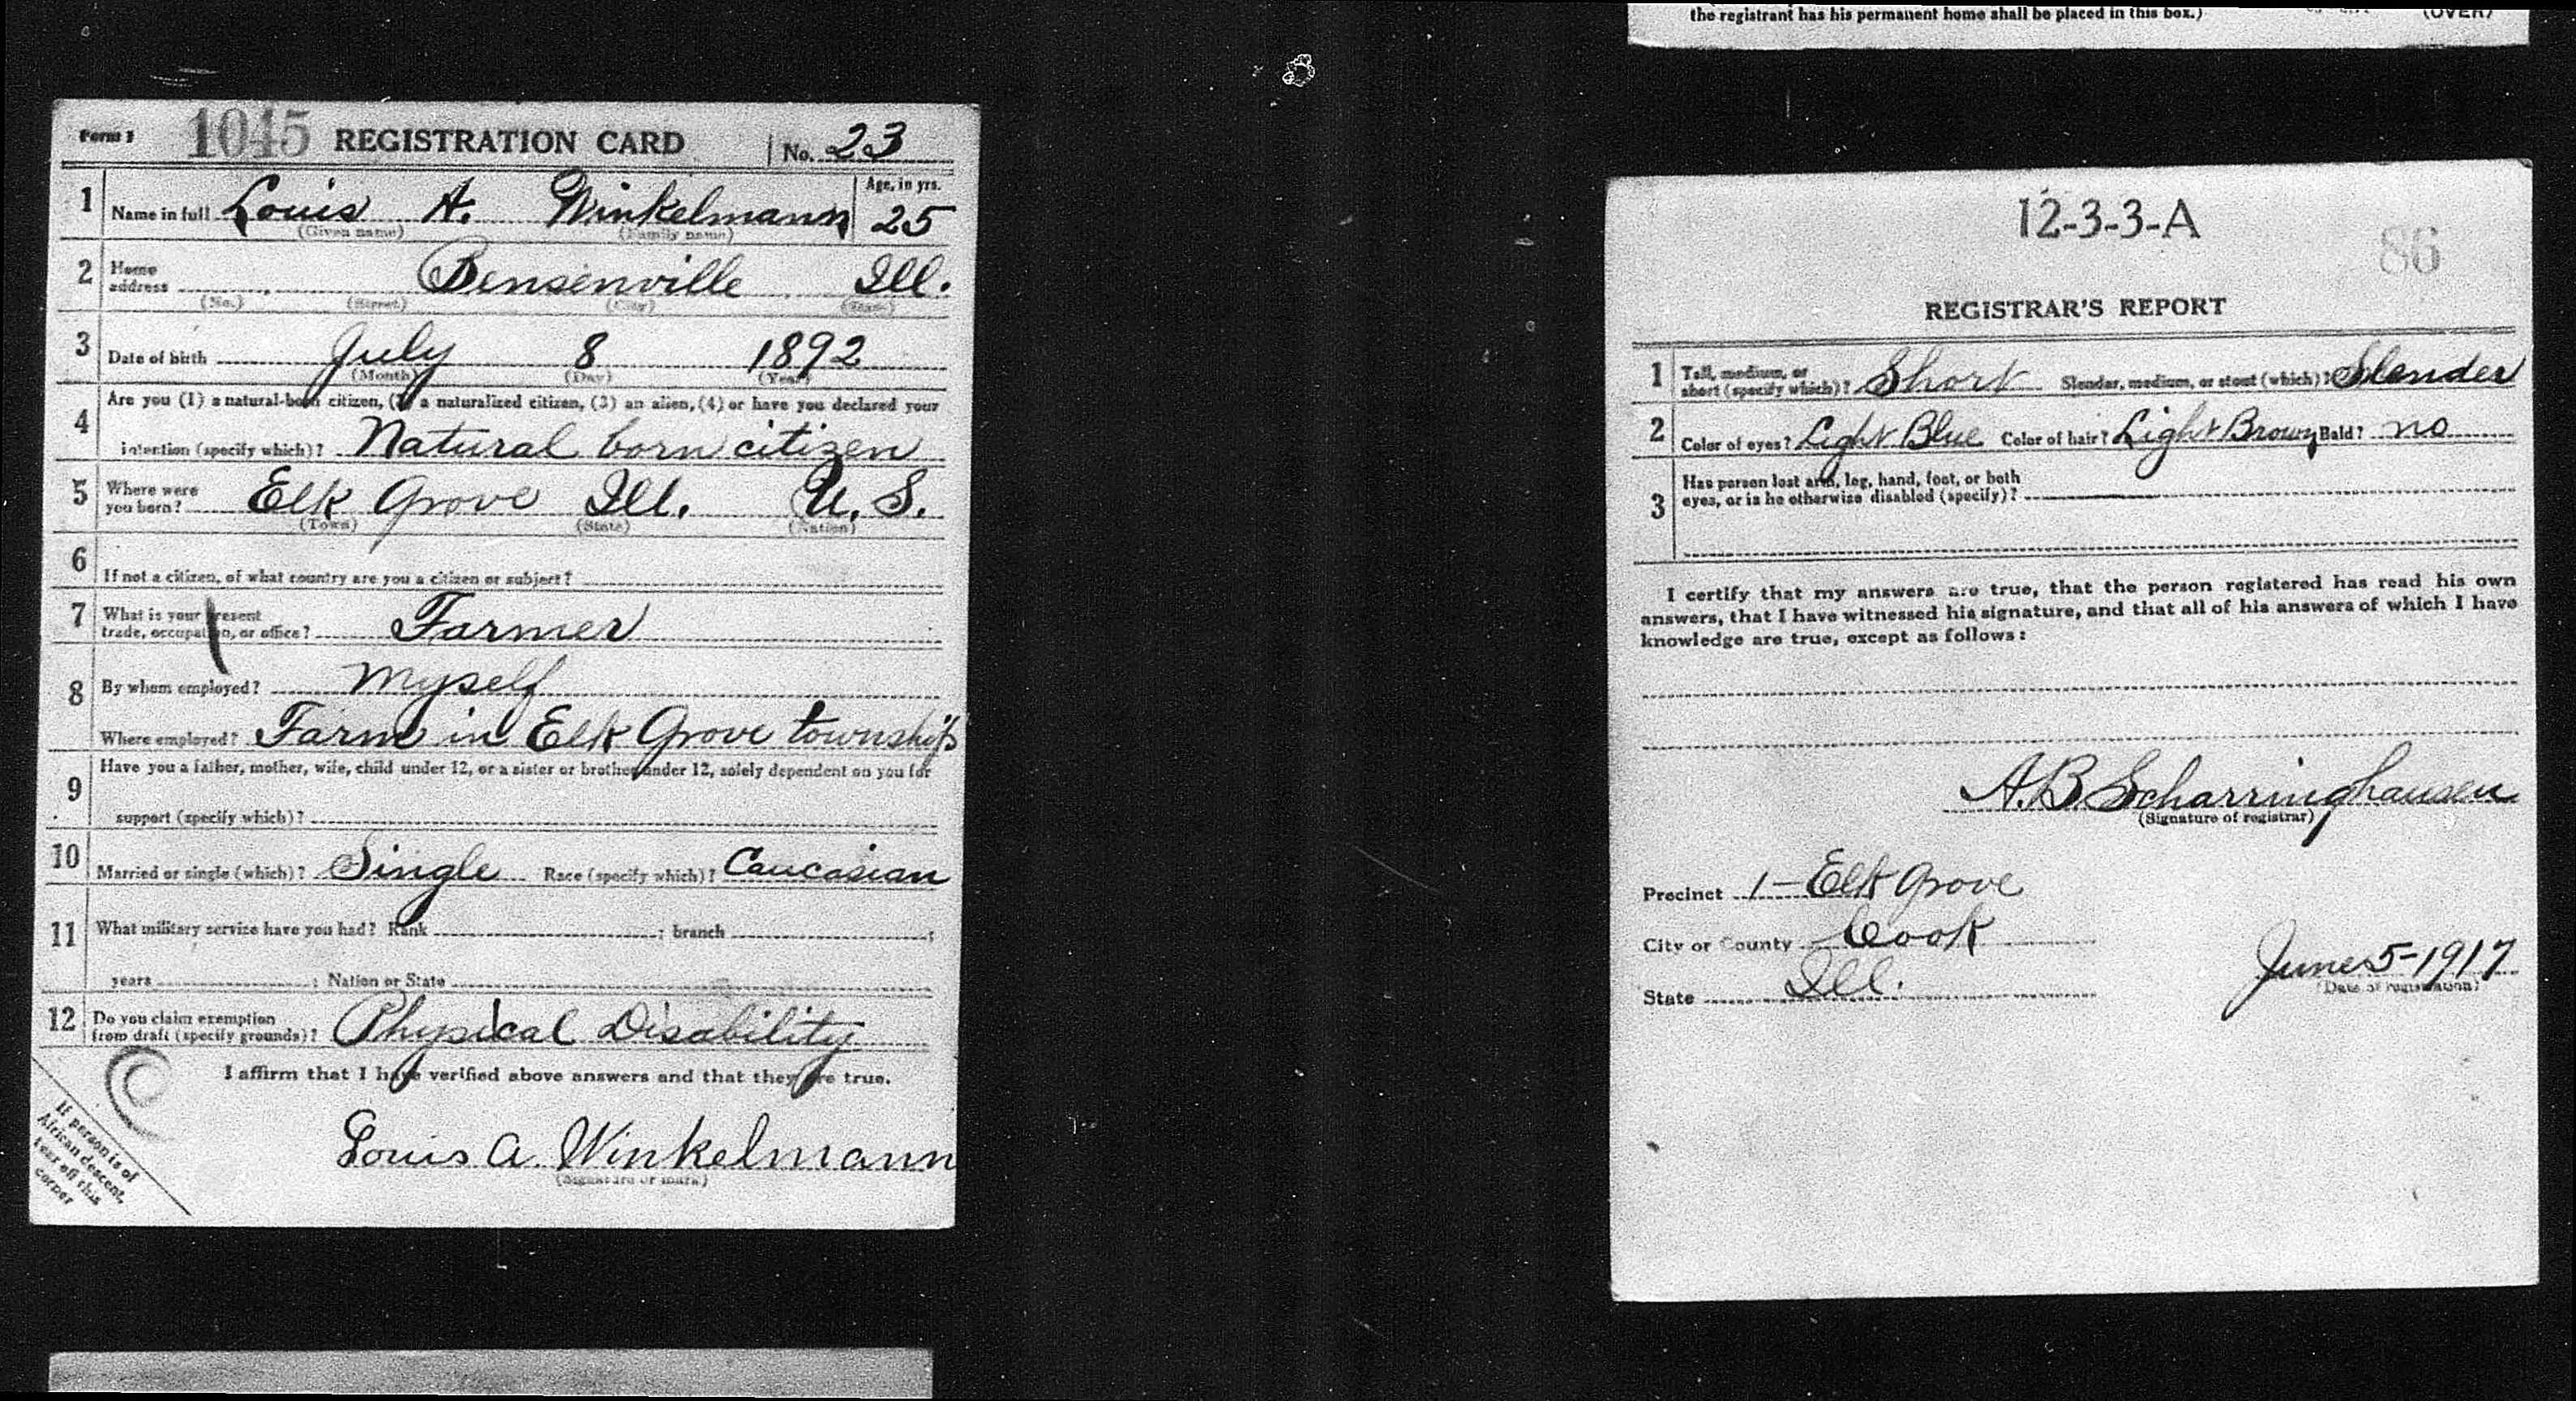 the registrant has his permanent home shall be placed in this box.) (OVER)
Form 1 1045 REGISTRATION CARD No. 23
1 Name in full Louis A. Winkelmann Age, in yrs. 25
(Given name) (Family name)
2 Home address Bensenville Ill.
(No.) (Street) (City) (State)
3 Date of birth July 8 1892
(Month) (Day) (Year)
4 Are you (1) a natural-born citizen, (2) a naturalized citizen, (3) an alien, (4) or have you declared your
intention (specify which)? Natural born citizen
5 Where were you born? Elk Grove Ill. U. S.
(Town) (State) (Nation)
6 If not a citizen, of what country are you a citizen or subject?
7 What is your present trade, occupation, or office? Farmer
8 By whom employed? Myself
Where employed? Farm in Elk Grove township
9 Have you a father, mother, wife, child under 12, or a sister or brother under 12, solely dependent on you for
support (specify which)?
10 Married or single (which)? Single Race (specify which)? Caucasian
11 What military service have you had? Rank ; branch ;
years ; Nation or State
12 Do you claim exemption from draft (specify grounds)? Physical Disability
I affirm that I have verified above answers and that they are true.
Louis A. Winkelmann
(Signature or mark)
If person is of
African descent,
tear off this
corner
12-3-3-A
86
REGISTRAR'S REPORT
1 Tall, medium, or short (specify which)? Short Slender, medium, or stout (which)? Slender
2 Color of eyes? Light Blue Color of hair? Light Brown Bald? no
3 Has person lost arm, leg, hand, foot, or both
eyes, or is he otherwise disabled (specify)?
I certify that my answers are true, that the person registered has read his own
answers, that I have witnessed his signature, and that all of his answers of which I have
knowledge are true, except as follows:
A. B. Scharringhausen
(Signature of registrar)
Precinct 1 - Elk Grove
City or County Cook
State Ill.
June 5 - 1917
(Date of registration)